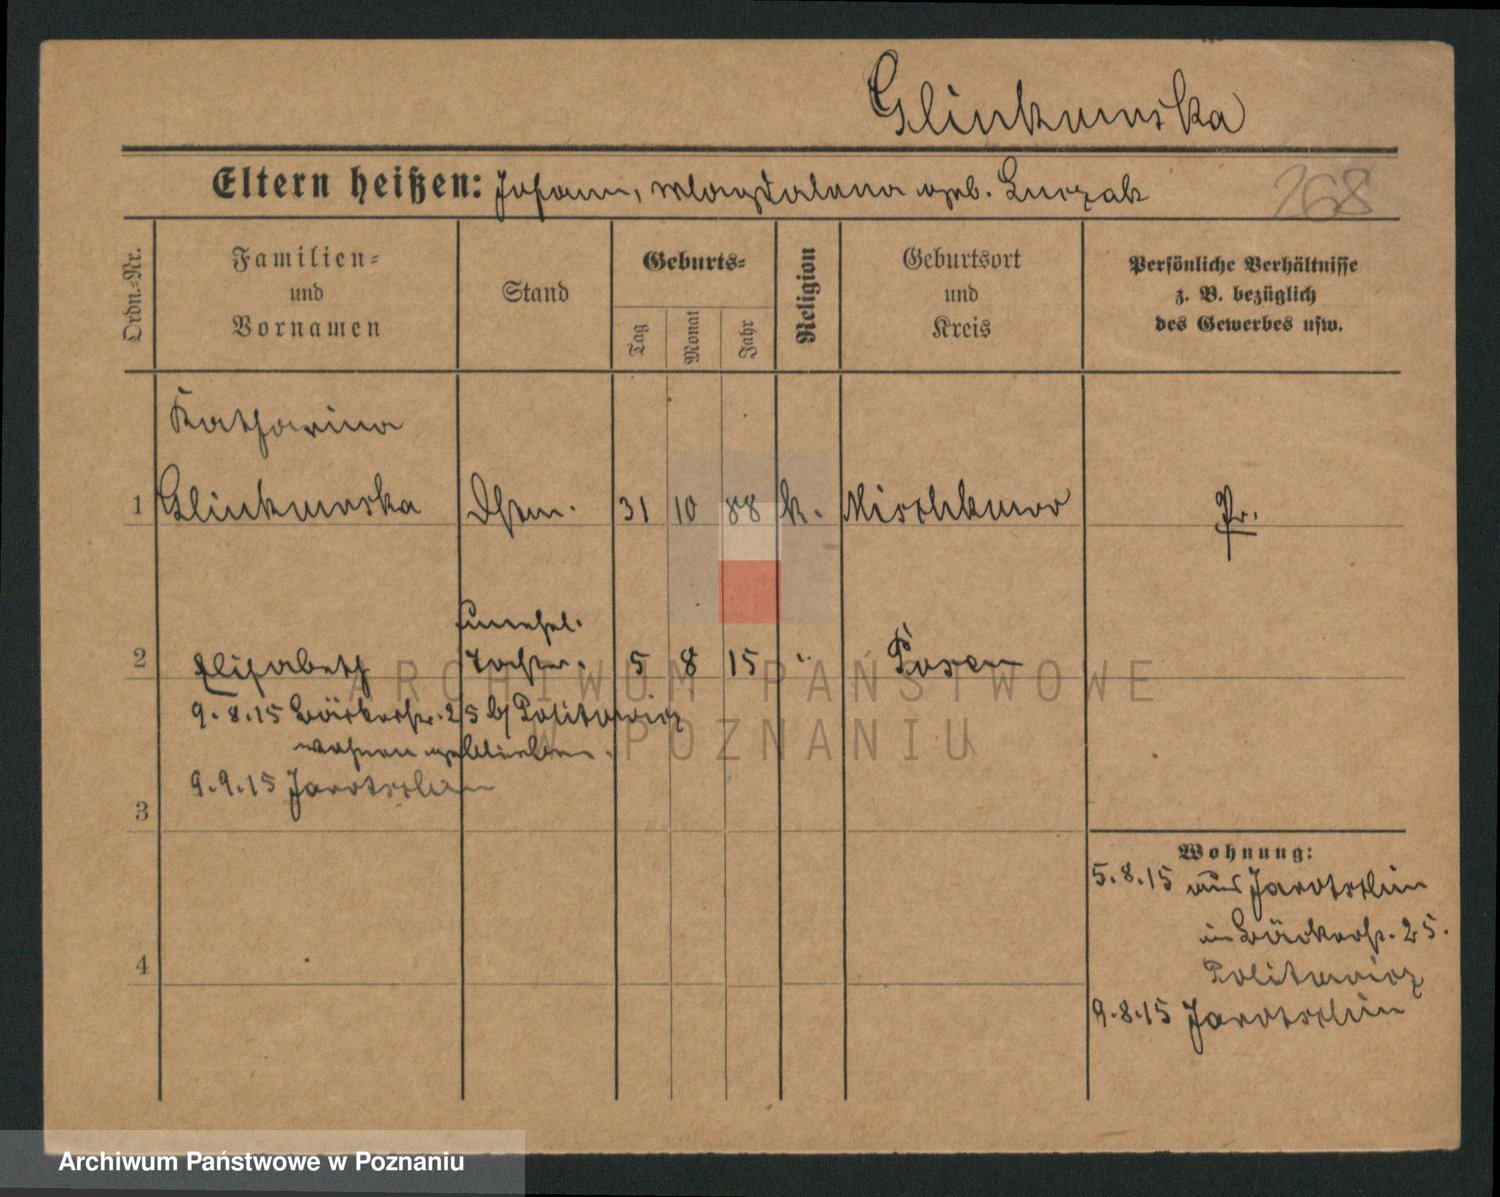 Glinkowska
Eltern heißen: Johann, Magdalena geb. Kurzak
168
Ordn.-Nr.
Familien-
und
Vornamen
Stand
Geburts-
Tag
Monat
Jahr
Religion
Geburtsort
und
Kreis
Persönliche Verhältnisse
z. B. bezüglich
des Gewerbes usw.
Katharina
1 Glinkowska 31 10 88 k. Mieschkow Pr.
unehel.
2 Elisabeth Tochter. 5 8 15 " Posen
9.8.15 Bäckerstr. 25 b/ Politowicz
wohnen geblieben.
9.9.15 Jarotschin
3
Wohnung:
5.8.15 aus Jarotschin
in Bäckerstr. 25.
Politowicz
9.8.15 Jarotschin
4
ARCHIWUM PAŃSTWOWE
W POZNANIU
Archiwum Państwowe w Poznaniu